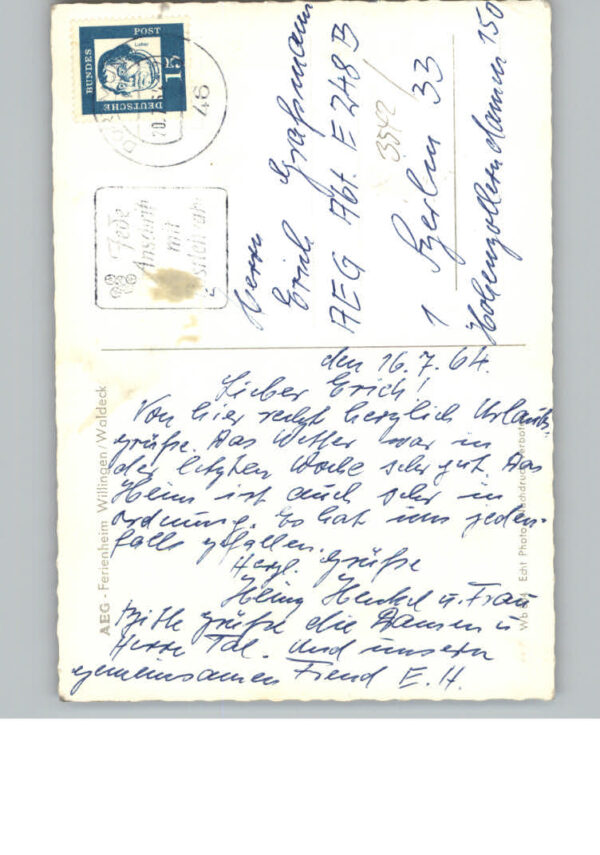 DEUTSCHE
BUNDES
POST
15
Luther
20.7.64
46
Jede
Anschrift
mit
Postleitzahl
Herrn
Erich Graßmann
AEG Abt. E 248 B
3542/
1 Berlin 33
Hohenzollerndamm 150
den 16.7.64.
Lieber Erich!
Von hier recht herzlich Urlaubs-
grüße. Das Wetter war in
der letzten Woche sehr gut. Das
Heim ist auch sehr in
Ordnung. Es hat uns jeden-
falls gefallen.
Herzl. Grüße
Heinz Henkel u. Frau
Bitte grüße die Damen u
Herrn Tal. und unsern
gemeinsamen Freund E. H.
AEG - Ferienheim Willingen/Waldeck
Echt Photo Nachdruck verboten